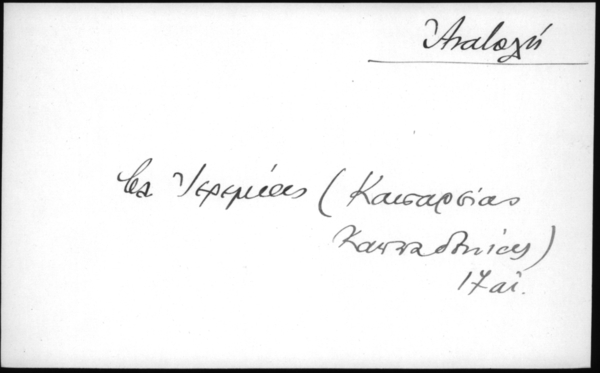 Ἀνατολή
Ἱερεμίας (Καισαρείας
Καππαδοκίας)
17 αἰ.